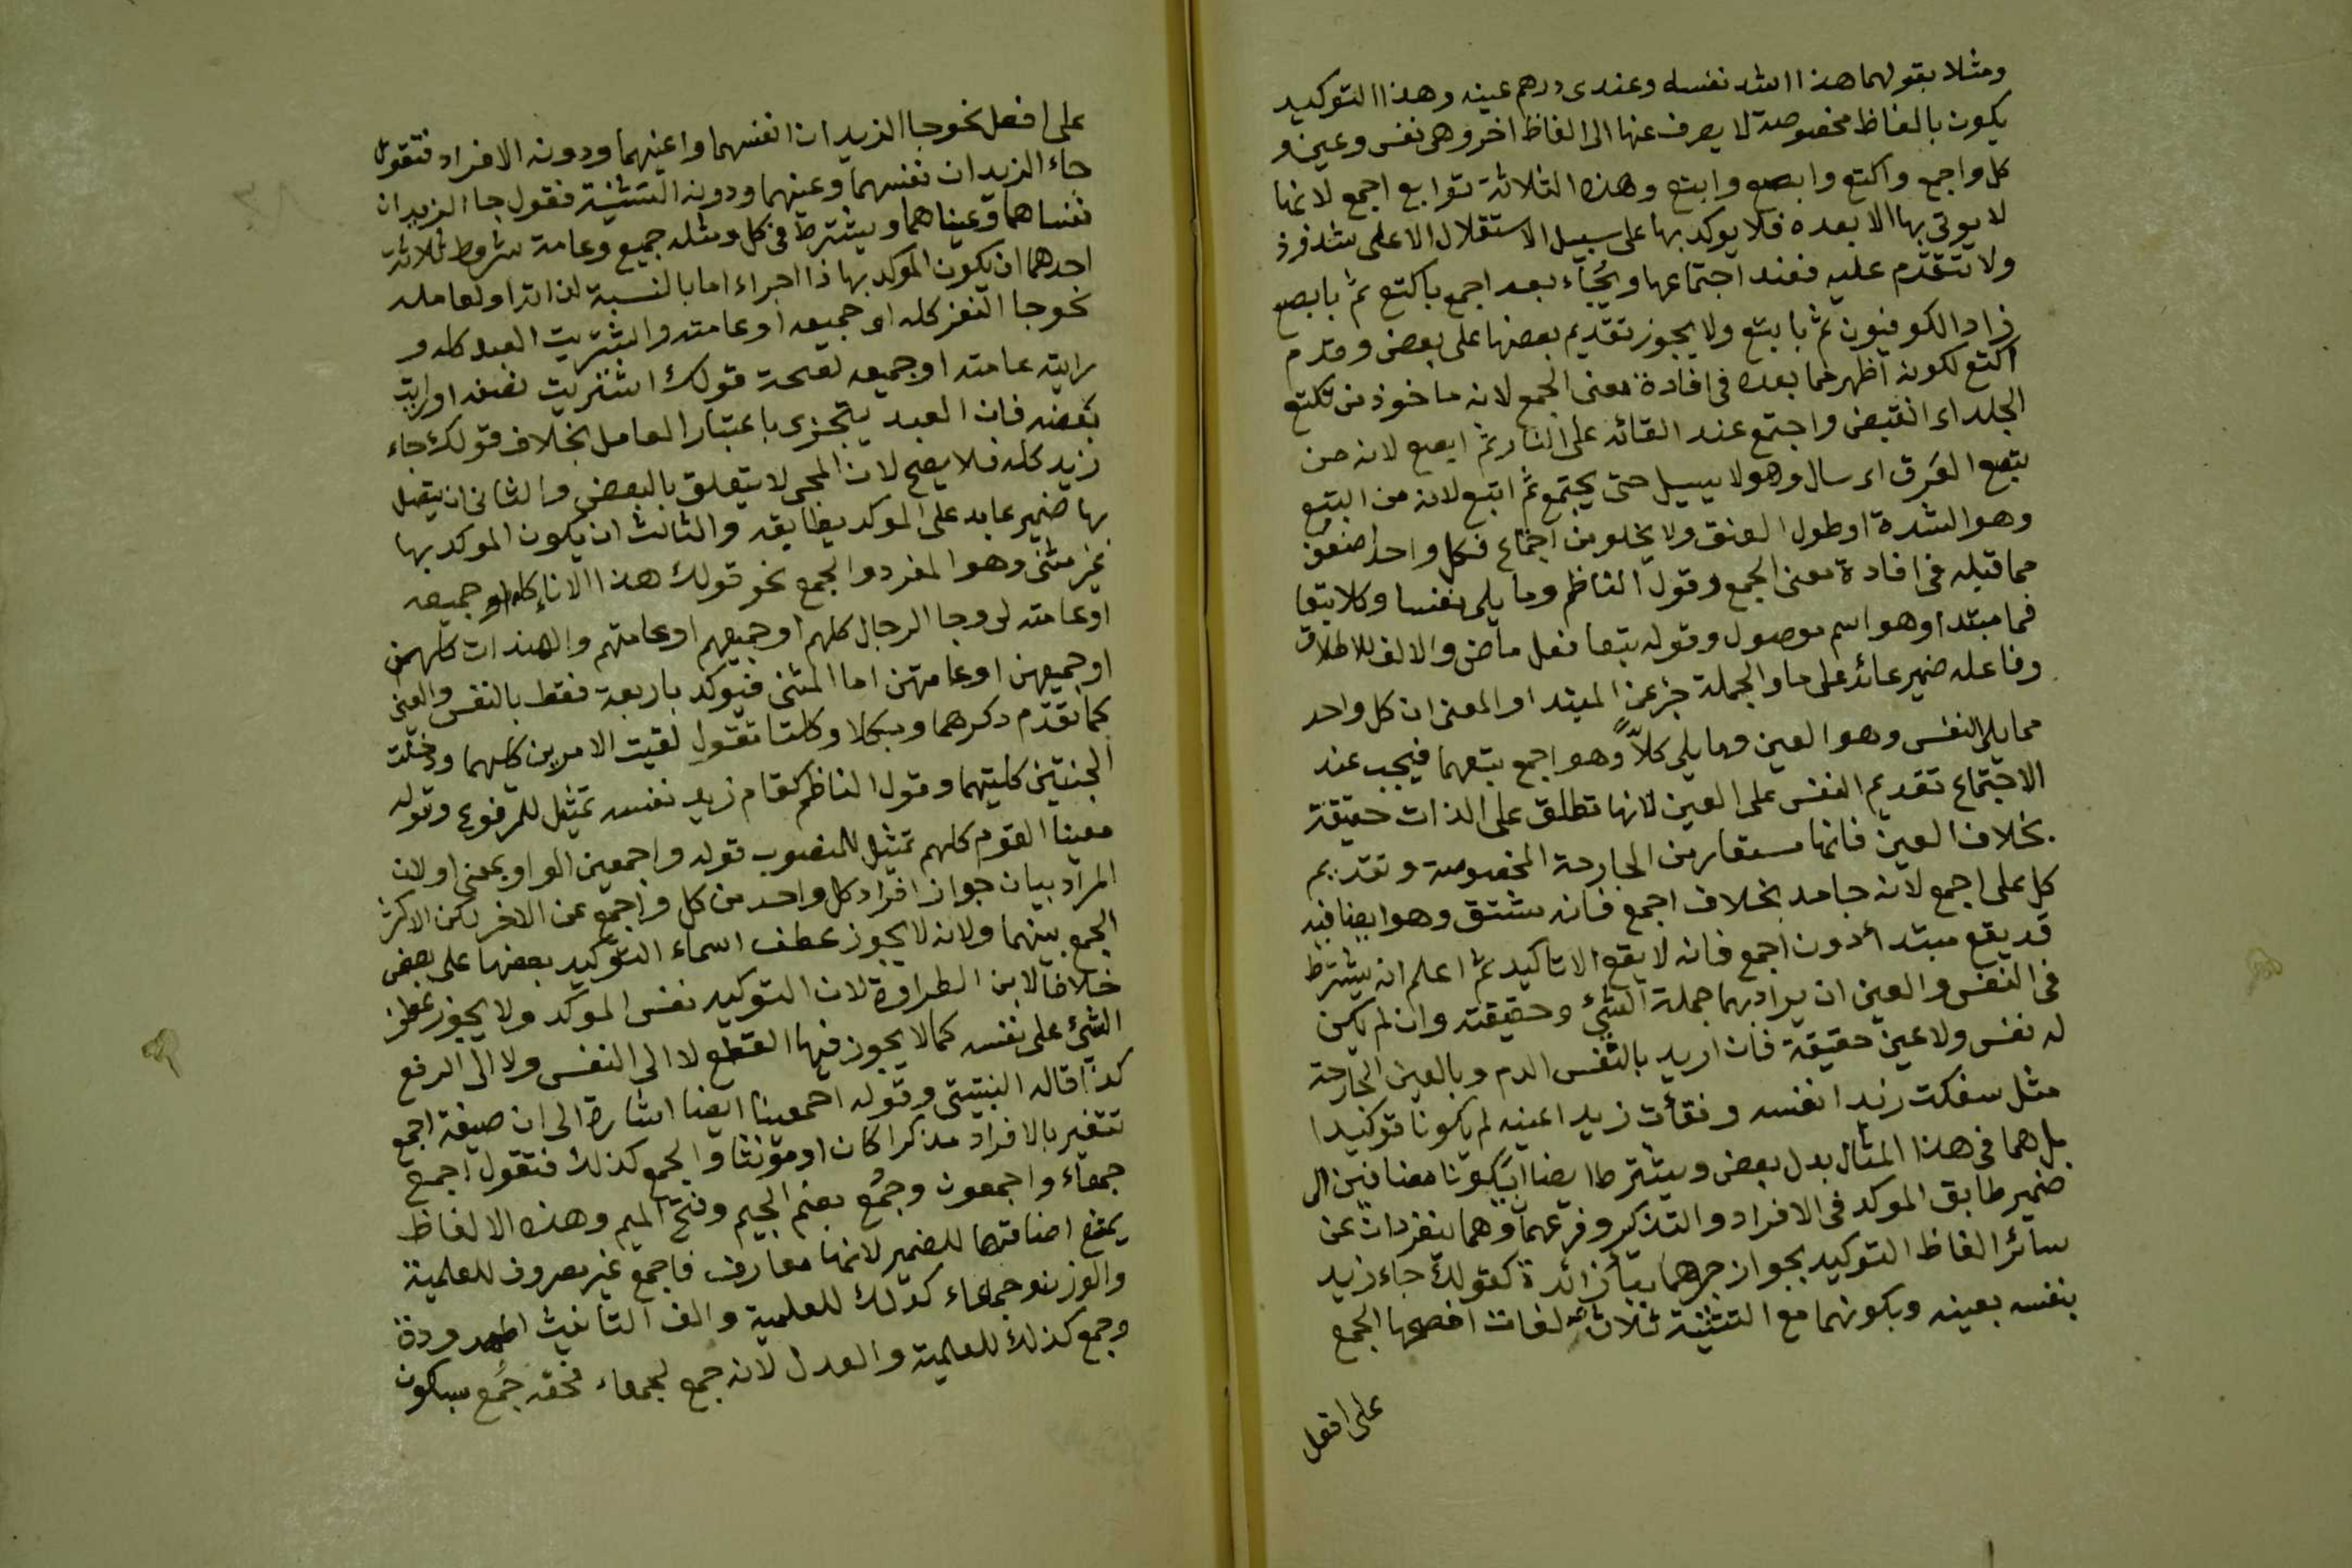 ومثلا بقولهما هذا اسد نفسه وعندى درهم عينه وهذا التوكيد
يكون بالفاظ مخصوصة لا يصرف عنها الى الفاظ اخر وهى نفس وعين و
كل واجمع واكتع وابصع وابتع وهذه الثلاثة توابع اجمع لانها
لا يوتى بها الا بعده فلا يوكد بها على سبيل الاستقلال الا على شذوذ
ولا تتقدم عليه فعند اجتماعها ويجاء بعد اجمع باكتع ثم بابصع
زاد الكوفيون ثم بابتع ولا يجوز تقديم بعضها على بعض وقدم
اكتع لكونه اظهر مما بعده فى افادة معنى الجمع لانه ماخوذ من تكتع
الجلد اى انقبض واجتمع عند القائه على النار ثم ابصع لانه من
بتصع العَرق اى سال وهو لا يسيل حتى يجتمع ثم ابتع لانه من البتع
وهو الشدة او طول العنق ولا يخلو من اجتماع فكل واحد اضعف
مما قبله فى افادة معنى الجمع وقول الناظم وما يلى نفسا وكلا بتعا
فما مبتدا وهو اسم موصول وقوله بتعا فعل ماض والالف للاطلاق
وفاعله ضمير عائد على ما والجملة خبر عن المبتدا والمعنى ان كل واحد
مما يلى النفس وهو العين وما يلى كلاً وهو اجمع بتعهما فيجب عند
الاجتماع تقديم النفس على العين لانها تطلق على الذات حقيقة
بخلاف العين فانها مستعار من الجارحة المخصوصة وتقديم
كل على اجمع لانه جامد بخلاف اجمع فانه مشتق وهو ايضا فيه
قد يقع مبتدأ دون اجمع فانه لا يقع الا تاكيد ثم اعلم انه يشترط
فى النفس والعين ان يراد بهما جملة الشئ وحقيقته وان لم يكن
له نفس ولا عين حقيقة فان اريد بالنفس الدم وبالعين الجارحة
مثل سفكت زيدا نفسه وفقأت زيدا عينه لم يكونا توكيدا
بل هما فى هذا المثال بدل بعض ويشترط ايضا ان يكونا مضافين الى
ضمير طابق الموكد فى الافراد والتذكير وفرعهما وهما ينفردان عن
سائر الفاظ التوكيد بجواز جرهما بباء زائدة كقولك جاء زيد
بنفسه بعينه وبكونهما مع التثنية ثلاث لغات افصحها الجمع
على افعل
على افعل نحو جا الزيدان انفسهما واعينهما ودونه الافراد فتقول
جاء الزيدان نفسهما وعينهما ودونه التثنية فقول جا الزيدان
نفساهما وعيناهما ويشترط فى كل ومثله جميع وعامة شروط ثلاثة
احدهما ان يكون الموكد بها ذا اجزاء اما بالنسبة لذاته او لعامله
نحو جا النفر كله او جميعه او عامته واشتريت العبد كله و
رايته عامته او جميعه لصحة قولك اشتريت نصفه او رايت
بعضه فان العبد يتجزى باعتبار العامل بخلاف قولك جاء
زيد كله فلا يصح لان المجى لا يتعلق بالبعض والثانى ان يتصل
بها ضمير عايد على الموكد يطابقه والثالث ان يكون الموكد بها
غير مثنى وهو المفرد والجمع نحو قولك هذا الاناء كله او جميعه
او عامته لى وجا الرجال كلهم او جميعهم او عامتهم والهندات كلهن
او جميعهن او عامتهن اما المثنى فيوكد باربعة فقط بالنفس والعين
كما تقدم ذكرهما وبكلا وكلتا تقول لقيت الاميرين كليهما ودخلت
الجنتين كلتيهما وقول الناظم كقام زيد نفسه تمثيل للمرفوع وقوله
معينا القوم كلهم تمثيل للمنصوب قوله واجمعين الواو بمعنى او لان
المراد بيان جواز افراد كل واحد من كل واجمع عن الاخر لكن الاكثر
الجمع بينهما ولانه لا يجوز عطف اسماء التوكيد بعضها على بعض
خلافا لابن الطراوة لان التوكيد نفس الموكد ولا يجوز عطف
الشئ على نفسه كما لا يجوز فيها القطع لا الى النفس ولا الى الرفع
كذا قاله النبتيتى وقوله اجمعينا ايضا اشارة الى ان صيغة اجمع
تتغير بالافراد مذكرا كان او مؤنثا والجمع كذلك فتقول اجمع
جمعاء واجمعون وجُمَع بضم الجيم وفتح الميم وهذه الالفاظ
يمتنع اضافتها للضمير لانها معارف فاجمع غير مصروف للعلمية
والوزن وجمعاء كذلك للعلمية والف التانيث الممدودة
وجمع كذلك للعلمية والعدل لانه جمع لجمعاء فحقه جُمْع بسكون